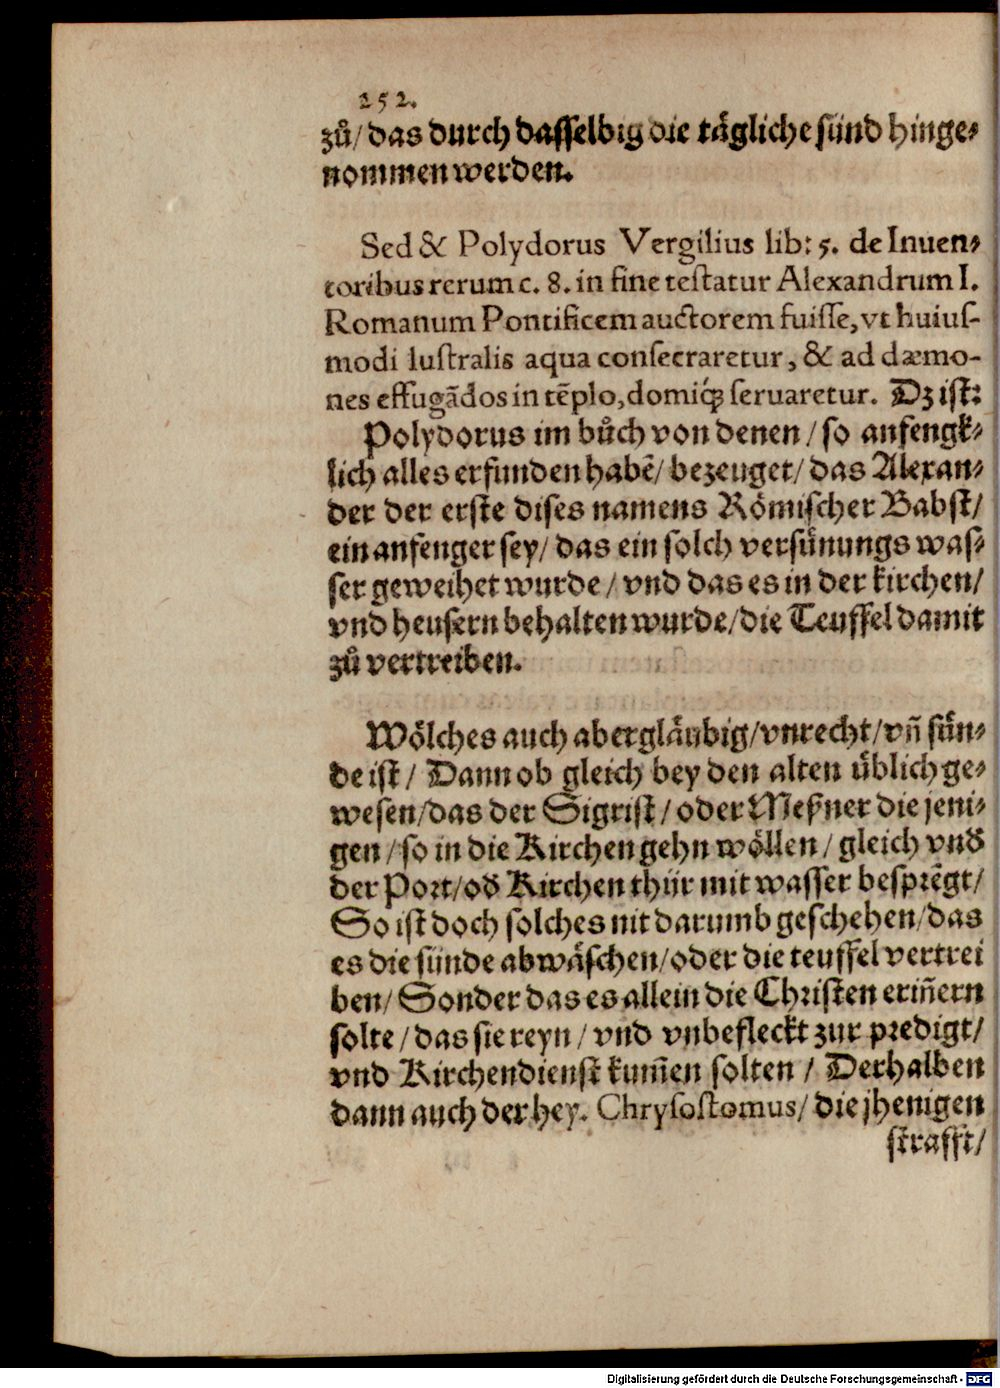 252.
zů/ das durch dasselbig die tägliche sünd hinge⸗
nommen werden.
Sed & Polydorus Vergilius lib: 5. de Inuen⸗
toribus rerum c. 8. in fine testatur Alexandrum I.
Romanum Pontificem auctorem fuisse, vt huius-
modi lustralis aqua consecraretur, & ad dæmo-
nes effugãdos in tẽplo, domiq́; seruaretur. Dz ist:
Polydorus im bůch von denen / so anfengk⸗
lich alles erfunden habẽ/ bezeuget/ das Alexan⸗
der der erste dises namens Römischer Babst/
ein anfenger sey/ das ein solch versünungs was⸗
ser geweihet wurde / vnd das es in der kirchen/
vnd heusern behalten wurde/die Teuffel damit
zů vertreiben.
Wölches auch abergläubig/vnrecht/vñ sün⸗
de ist / Dann ob gleich bey den alten üblich ge⸗
wesen/das der Sigrist / oder Meßner die jeni⸗
gen / so in die Kirchen gehn wöllen / gleich vnd̕
der Port/od̕ Kirchen thür mit wasser besprẽgt/
So ist doch solches nit darumb geschehen/das
es die sünde abwäschen/oder die teuffel vertrei
ben/ Sonder das es allein die Christen eriñern
solte / das sie reyn / vnd vnbefleckt zur predigt/
vnd Kirchendienst kum̃en solten / Derhalben
dann auch der hey. Chrysostomus/ die jhenigen
strafft/
Digitalisierung gefördert durch die Deutsche Forschungsgemeinschaft - DFG